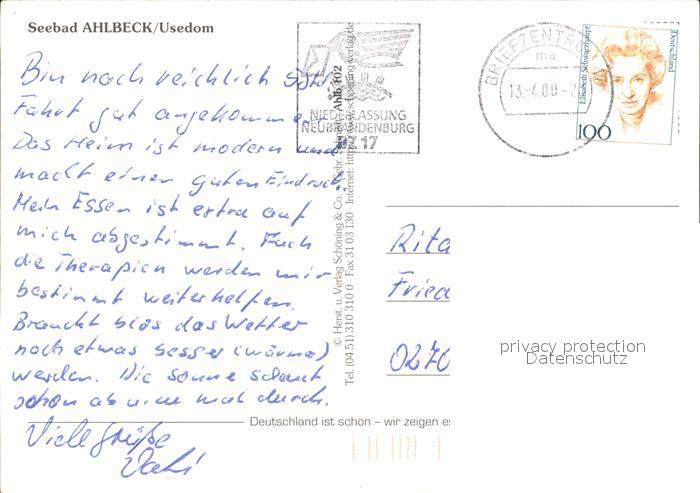 Seebad AHLBECK/Usedom
Bin nach reichlich
Fahrt gut angekommen.
Das Heim ist modern und
macht einen guten Eindruck.
Mein Essen ist extra auf
mich abgestimmt. Auch
die Therapien werden mir
bestimmt weiterhelfen.
Braucht blos das Wetter
noch etwas besser (wärmer)
werden. Die Sonne schaut
schon ab u. zu mal durch.
Viele Grüße
© Herst. u. Verlag Schöning & Co.
Ahlb 102
Internet: http://www.schoening-verlag.de
Tel. (04 51) 310 310 0 · Fax 31 03 130
NIEDERLASSUNG
NEUBRANDENBURG
17
BRIEFZENTRUM
ma
13.-4.00-2
Elisabeth Schwarzhaupt
Deutschland
100
Rita
Fried
0270
privacy protection
Datenschutz
Deutschland ist schön – wir zeigen es